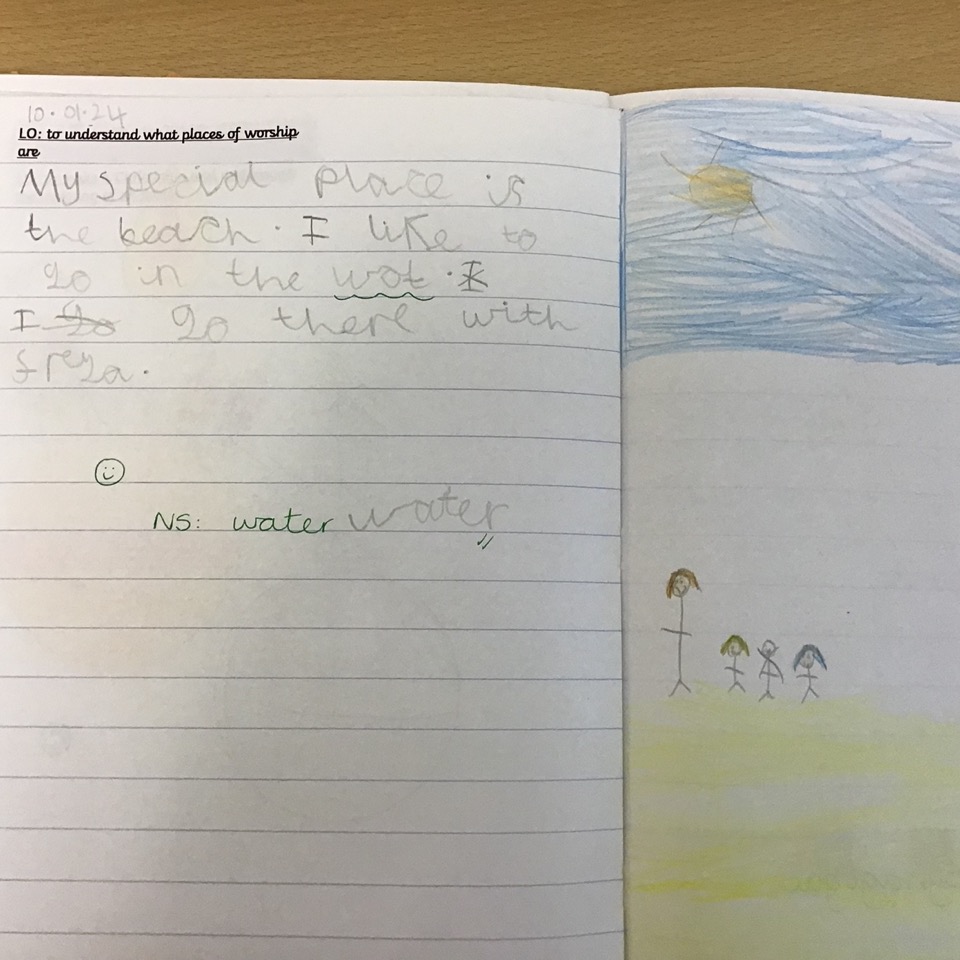 10.01.24
LO: to understand what places of worship
are
My special place is
the beach. I like to
go in the wot. I
I go go there with
freya.
NS: water water